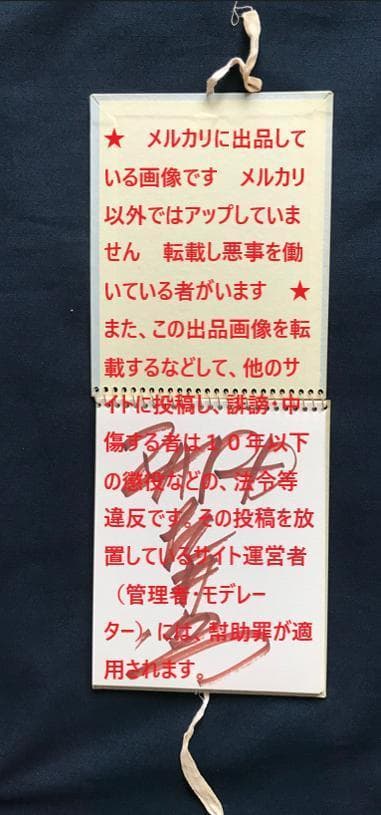 ★　メルカリに出品して
いる画像です　メルカリ
以外ではアップしていま
せん　転載し悪事を働
いている者がいます　★
また、この出品画像を転
載するなどして、他のサ
イトに投稿し、誹謗・中
傷する者は１０年以下
の懲役などの、法令等
違反です。その投稿を放
置しているサイト運営者
（管理者・モデレー
ター）には、幇助罪が適
用されます。